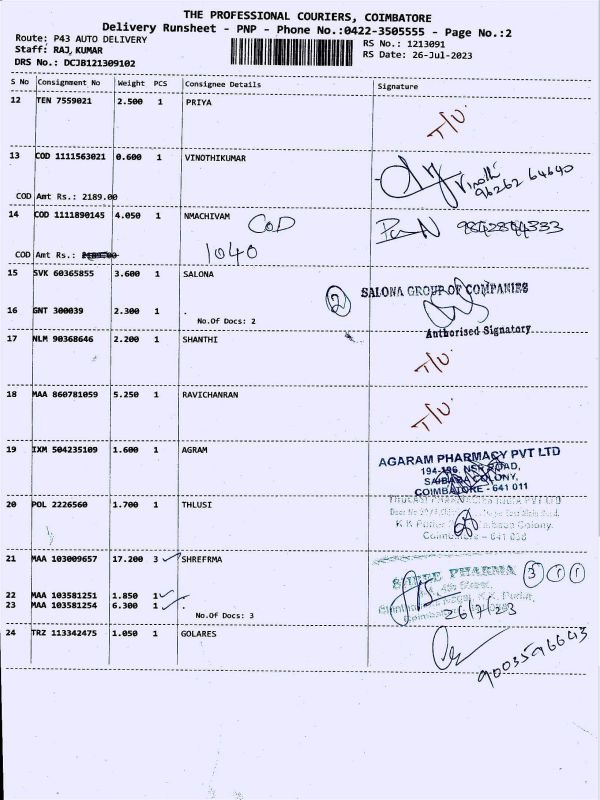 THE PROFESSIONAL COURIERS, COIMBATORE
Delivery Runsheet - PNP - Phone No.:0422-3505555 - Page No.:2
Route: P43 AUTO DELIVERY
RS No.: 1213091
Staff: RAJ,KUMAR
RS Date: 26-Jul-2023
DRS No.: DCJB121309102
S No Consignment No Weight PCS Consignee Details Signature
12 TEN 7559021 2.500 1 PRIYA
T/U.
13 COD 1111563021 0.600 1 VINOTHIKUMAR
Vinothi
96262 64640
COD Amt Rs.: 2189.00
14 COD 1111890145 4.050 1 NMACHIVAM
COD
COD Amt Rs.:
1040
15 SVK 60365855 3.600 1 SALONA
2 SALONA GROUP OF COMPANIES
16 GNT 300039 2.300 1 .
No.Of Docs: 2
Authorised Signatory
17 NLM 90368646 2.200 1 SHANTHI
T/U.
18 MAA 860781059 5.250 1 RAVICHANRAN
T/U.
19 IXM 504235109 1.600 1 AGRAM
AGARAM PHARMACY PVT LTD
194-196, NSR ROAD,
SAIBABA COLONY,
COIMBATORE - 641 011
20 POL 2226560 1.700 1 THLUSI
Coimbatore - 641 038
21 MAA 103009657 17.200 3 SHREFRMA
SHREE PHARMA 3 1 1
22 MAA 103581251 1.850 1
23 MAA 103581254 6.300 1 .
26/7/23
No.Of Docs: 3
24 TRZ 113342475 1.050 1 GOLARES
9003596643